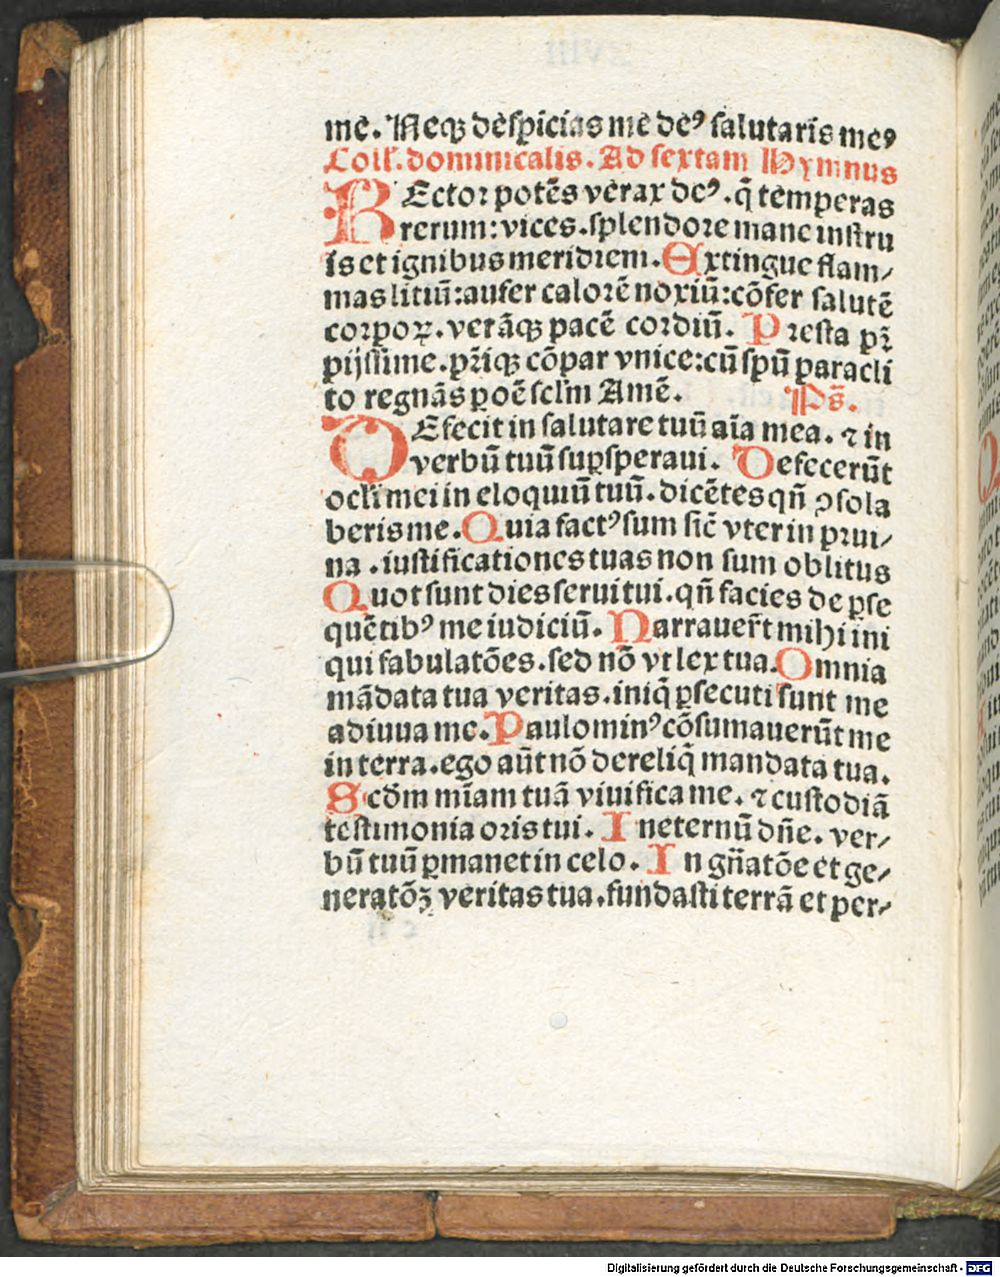 me. Neqꝫ despicias me deꝰ salutaris meꝰ
Coll'. dominicalis. Ad sextam Hymnus
REctor potēs verax deꝰ. q̄ temperas
rerum: vices. splendore mane instru
is et ignibus meridiem. Extingue flam⸗
mas litiū: aufer calorē noxiū: cōfer salutē
corpoꝝ. verāqꝫ pacē cordiū. Presta pr̄
pijssime. pr̄iqꝫ cōpar vnice: cū spū paracli
to regnās ꝑ oē seclm̄ Amē. Ps̄.
DEfecit in salutare tuū aīa mea. ⁊ in
verbū tuū suꝑsperaui. Defecerūt
ocli mei in eloquiū tuū. dicētes qn̄ ꝯsola
beris me. Quia factꝰ sum sic̄ vter in prui⸗
na. iustificationes tuas non sum oblitus
Quot sunt dies serui tui. qn̄ facies de ꝑse
quētibꝰ me iudiciū. Narrauer̄t mihi ini
qui fabulatōes. sed nō vt lex tua. Omnia
mādata tua veritas. iniq̄ ꝑsecuti sunt me
adiuua me. Paulominꝰ cōsumauerūt me
in terra. ego aūt nō dereliq̄ mandata tua.
Scdm̄ mīam tuā viuifica me. ⁊ custodiā
testimonia oris tui. In eternū dn̄e. ver⸗
bū tuū ꝑmanet in celo. In gn̄atōe et ge⸗
neratōꝫ veritas tua. fundasti terrā et per⸗
Digitalisierung gefördert durch die Deutsche Forschungsgemeinschaft - DFG